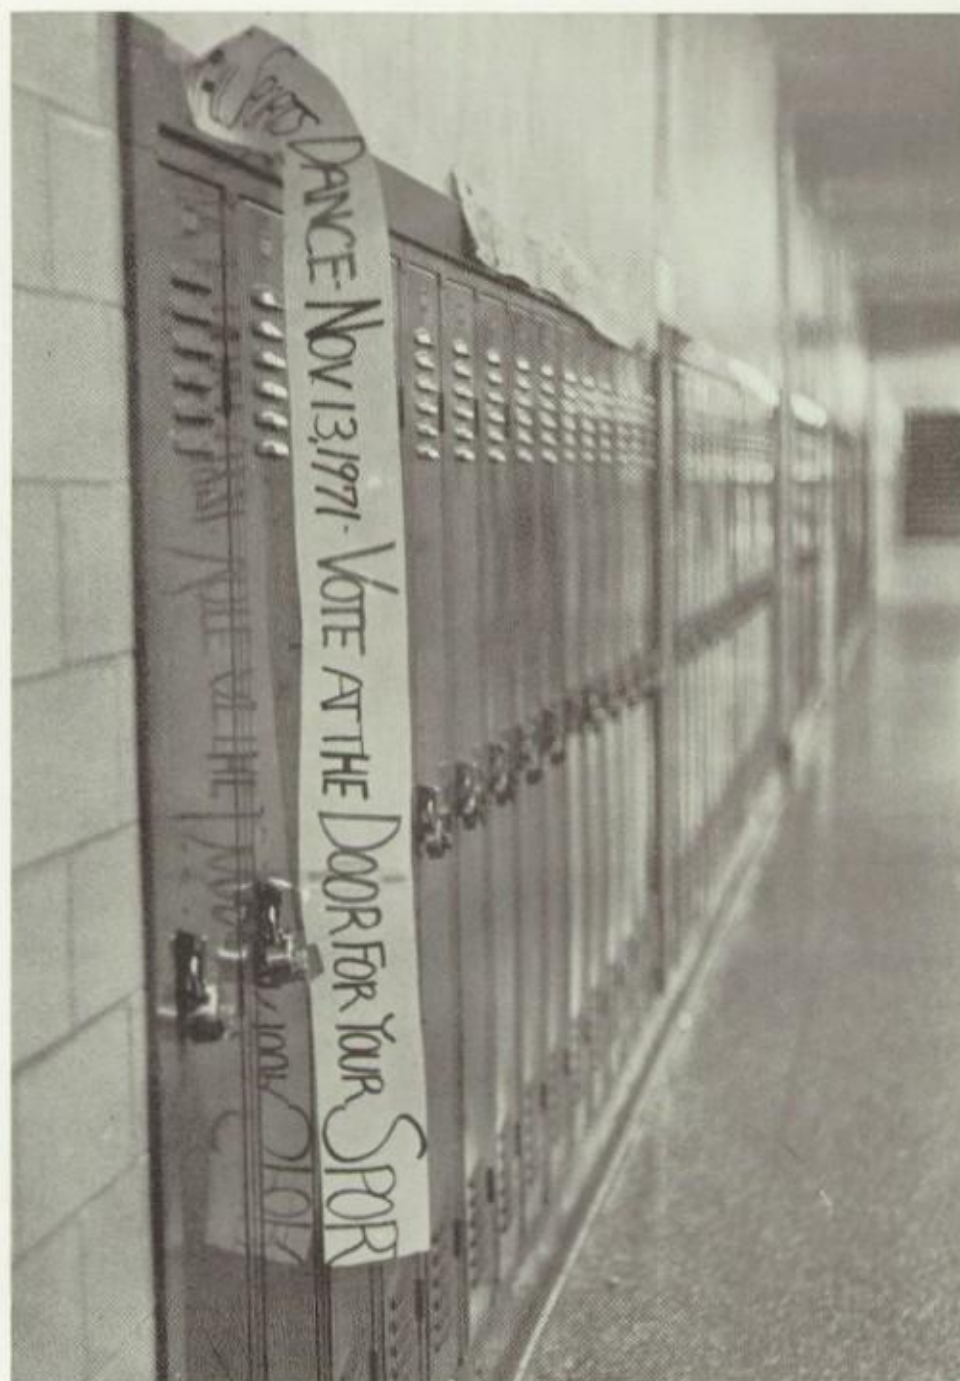 Sports DANCE - NOV 13, 1971 - VOTE AT THE DOOR FOR YOUR SPORT